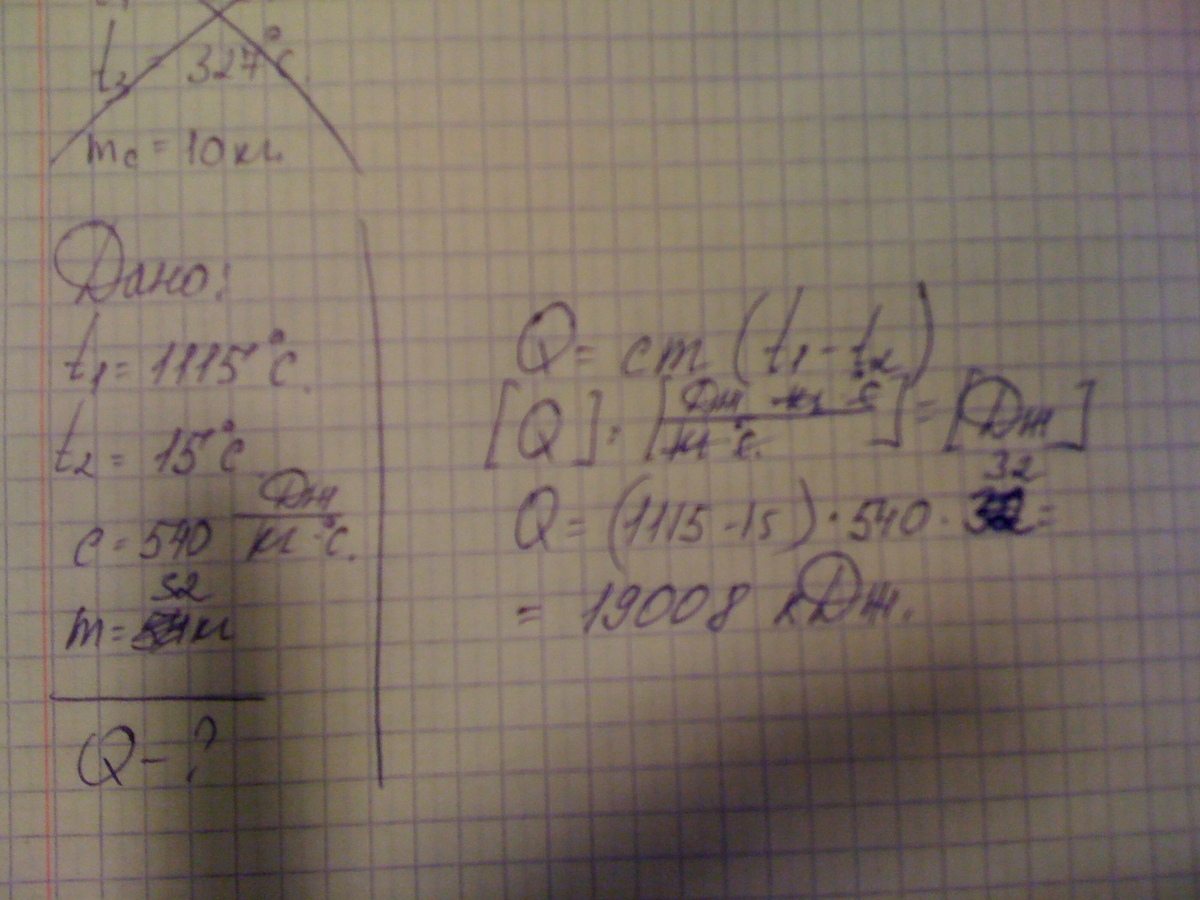 t₂ = 327°C.
mc = 10 кг.
Дано:
t₁ = 1115°C.
t₂ = 15°C
c = 540 Дж/кг·°C.
32
m = кг
Q - ?
Q = cm (t₁ - t₂)
[Q] = [Дж · кг · °C / кг · °C.] = [Дж]
32
Q = (1115 - 15) · 540 · =
= 19008 кДж.